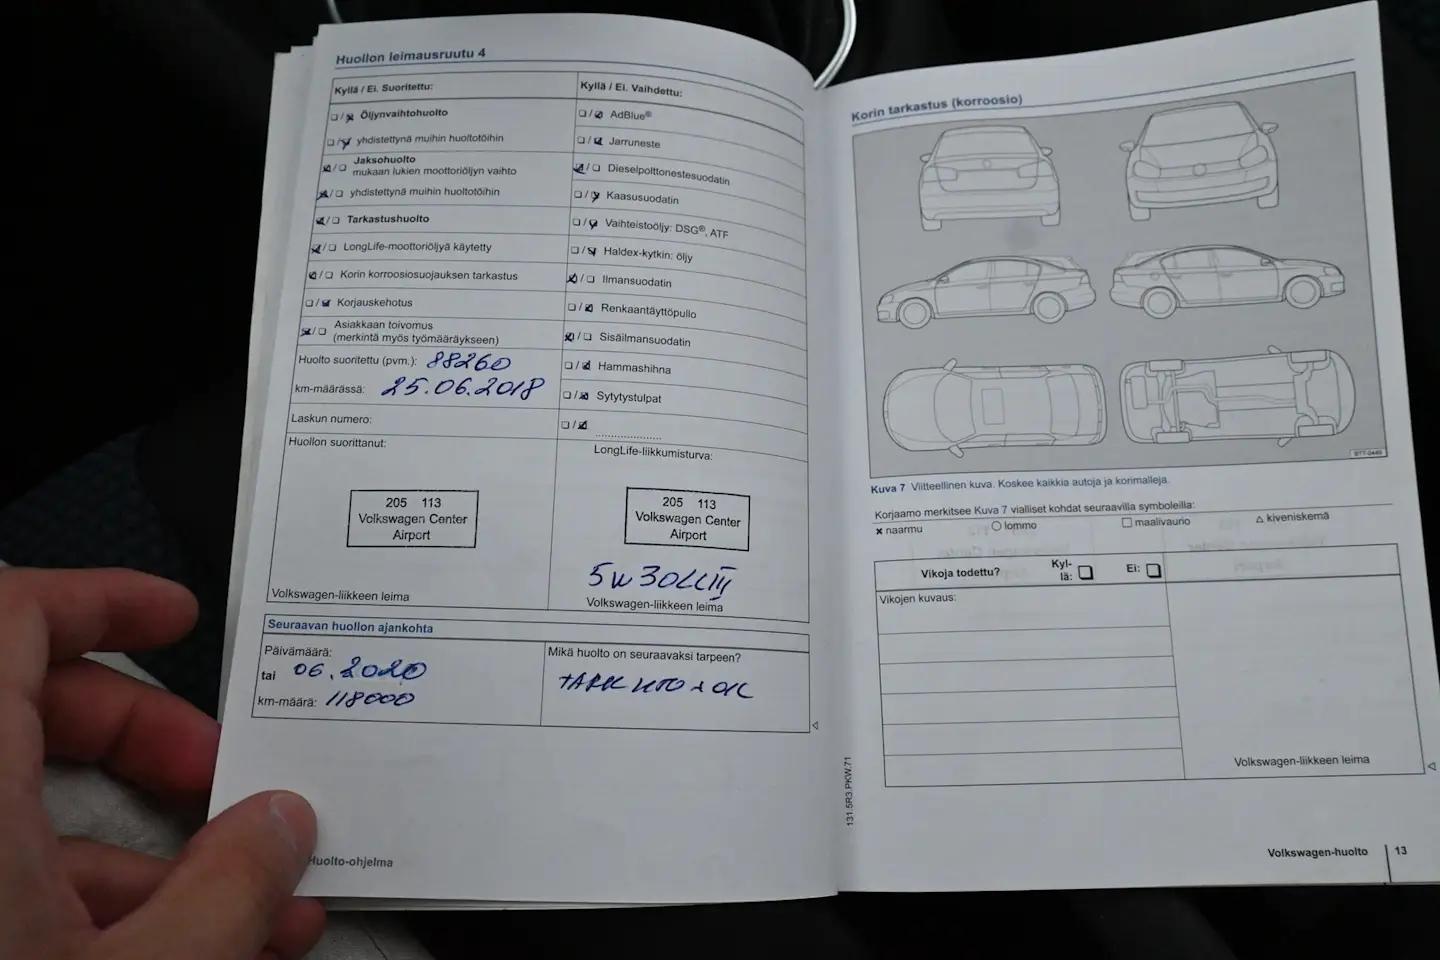 Huollon leimausruutu 4
Kyllä / Ei. Suoritettu:
Öljynvaihtohuolto
yhdistettynä muihin huoltotöihin
Jaksohuolto
mukaan lukien moottoriöljyn vaihto
yhdistettynä muihin huoltotöihin
Tarkastushuolto
LongLife-moottoriöljyä käytetty
Korin korroosiosuojauksen tarkastus
Korjauskehotus
Asiakkaan toivomus
(merkintä myös työmääräykseen)
Huolto suoritettu (pvm.): 88260
km-määrässä: 25.06.2018
Laskun numero:
Huollon suorittanut:
205 113
Volkswagen Center
Airport
Volkswagen-liikkeen leima
Kyllä / Ei. Vaihdettu:
AdBlue®
Jarruneste
Dieselpolttonestesuodatin
Kaasusuodatin
Vaihteistoöljy: DSG®, ATF
Haldex-kytkin: öljy
Ilmansuodatin
Renkaantäyttöpullo
Sisäilmansuodatin
Hammashihna
Sytytystulpat
LongLife-liikkumisturva:
205 113
Volkswagen Center
Airport
Volkswagen-liikkeen leima
Seuraavan huollon ajankohta
Päivämäärä:
tai 06.2020
km-määrä: 118000
Mikä huolto on seuraavaksi tarpeen?
Huolto-ohjelma
Korin tarkastus (korroosio)
BTT-0449
Kuva 7 Viitteellinen kuva. Koskee kaikkia autoja ja korimalleja.
Korjaamo merkitsee Kuva 7 vialliset kohdat seuraavilla symboleilla:
× naarmu ○ lommo □ maalivaurio △ kiveniskemä
Vikoja todettu? Kyl-
lä: Ei:
Vikojen kuvaus:
Volkswagen-liikkeen leima
131.5R3.PKW.71
Volkswagen-huolto 13